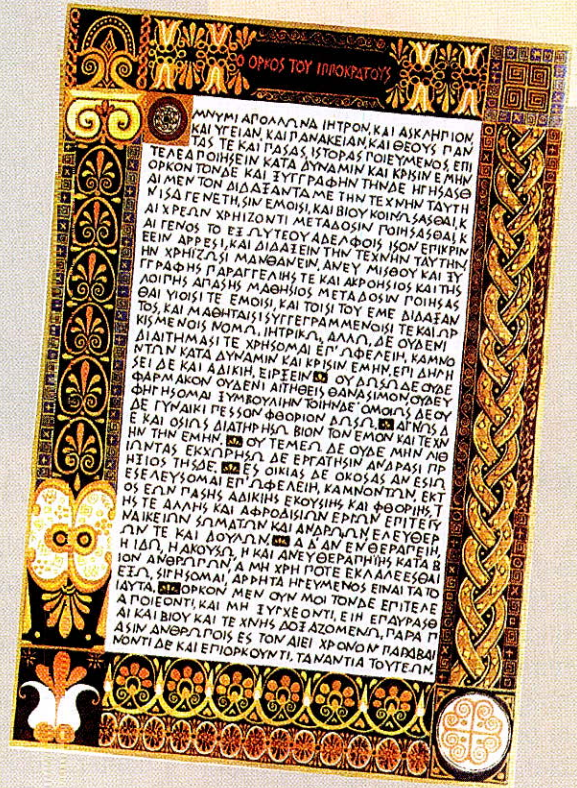 Ο ΟΡΚΟΣ ΤΟΥ ΙΠΠΟΚΡΑΤΟΥΣ
ΟΜΝΥΜΙ ΑΠΟΛΛΩΝΑ ΙΗΤΡΟΝ, ΚΑΙ ΑΣΚΛΗΠΙΟΝ
ΚΑΙ ΥΓΕΙΑΝ, ΚΑΙ ΠΑΝΑΚΕΙΑΝ, ΚΑΙ ΘΕΟΥΣ ΠΑΝ
ΤΑΣ ΤΕ ΚΑΙ ΠΑΣΑΣ, ΙΣΤΟΡΑΣ ΠΟΙΕΥΜΕΝΟΣ, ΕΠΙ
ΤΕΛΕΑ ΠΟΙΗΣΕΙΝ ΚΑΤΑ ΔΥΝΑΜΙΝ ΚΑΙ ΚΡΙΣΙΝ ΕΜΗΝ
ΟΡΚΟΝ ΤΟΝΔΕ ΚΑΙ ΞΥΓΓΡΑΦΗΝ ΤΗΝΔΕ ΗΓΗΣΑΣΘ
ΑΙ ΜΕΝ ΤΟΝ ΔΙΔΑΞΑΝΤΑ ΜΕ ΤΗΝ ΤΕΧΝΗΝ ΤΑΥΤΗ
Ν ΙΣΑ ΓΕΝΕΤΗΣΙΝ ΕΜΟΙΣΙ, ΚΑΙ ΒΙΟΥ ΚΟΙΝΩΣΑΣΘΑΙ, Κ
ΑΙ ΧΡΕΩΝ ΧΡΗΙΖΟΝΤΙ ΜΕΤΑΔΟΣΙΝ ΠΟΙΗΣΑΣΘΑΙ, Κ
ΑΙ ΓΕΝΟΣ ΤΟ ΕΞ ΩΥΤΕΟΥ ΑΔΕΛΦΟΙΣ ΙΣΟΝ ΕΠΙΚΡΙΝ
ΕΕΙΝ ΑΡΡΕΣΙ, ΚΑΙ ΔΙΔΑΞΕΙΝ ΤΗΝ ΤΕΧΝΗΝ ΤΑΥΤΗΝ
ΗΝ ΧΡΗΙΖΩΣΙ ΜΑΝΘΑΝΕΙΝ, ΑΝΕΥ ΜΙΣΘΟΥ ΚΑΙ ΞΥ
ΓΓΡΑΦΗΣ ΠΑΡΑΓΓΕΛΙΗΣ ΤΕ ΚΑΙ ΑΚΡΟΗΣΙΟΣ ΚΑΙ ΤΗΣ
ΛΟΙΠΗΣ ΑΠΑΣΗΣ ΜΑΘΗΣΙΟΣ ΜΕΤΑΔΟΣΙΝ ΠΟΙΗΣΑΣ
ΘΑΙ ΥΙΟΙΣΙ ΤΕ ΕΜΟΙΣΙ, ΚΑΙ ΤΟΙΣΙ ΤΟΥ ΕΜΕ ΔΙΔΑΞΑΝ
ΤΟΣ, ΚΑΙ ΜΑΘΗΤΑΙΣΙ ΣΥΓΓΕΓΡΑΜΜΕΝΟΙΣΙ ΤΕ ΚΑΙ ΩΡ
ΚΙΣΜΕΝΟΙΣ ΝΟΜΩ, ΙΗΤΡΙΚΩ, ΑΛΛΩ, ΔΕ ΟΥΔΕΝΙ
ΔΙΑΙΤΗΜΑΣΙ ΤΕ ΧΡΗΣΟΜΑΙ ΕΠ' ΩΦΕΛΕΙΗ, ΚΑΜΝΟ
ΝΤΩΝ ΚΑΤΑ ΔΥΝΑΜΙΝ ΚΑΙ ΚΡΙΣΙΝ ΕΜΗΝ, ΕΠΙ ΔΗΛΗ
ΣΕΙ ΔΕ ΚΑΙ ΑΔΙΚΗ, ΕΙΡΞΕΙΝ ΟΥ ΔΩΣΩ ΔΕ ΟΥΔΕ
ΦΑΡΜΑΚΟΝ ΟΥΔΕΝΙ ΑΙΤΗΘΕΙΣ ΘΑΝΑΣΙΜΟΝ, ΟΥΔΕ Υ
ΦΗΓΗΣΟΜΑΙ ΞΥΜΒΟΥΛΙΗΝ ΤΟΙΗΝΔΕ ΟΜΟΙΩΣ ΔΕ ΟΥ
ΔΕ ΓΥΝΑΙΚΙ ΠΕΣΣΟΝ ΦΘΟΡΙΟΝ ΔΩΣΩ. ΑΓΝΩΣ Δ
Ε ΚΑΙ ΟΣΙΩΣ ΔΙΑΤΗΡΗΣΩ ΒΙΟΝ ΤΟΝ ΕΜΟΝ ΚΑΙ ΤΕΧΝ
ΗΝ ΤΗΝ ΕΜΗΝ. ΟΥ ΤΕΜΕΩ ΔΕ ΟΥΔΕ ΜΗΝ ΛΙΘ
ΙΩΝΤΑΣ ΕΚΧΩΡΗΣΩ ΔΕ ΕΡΓΑΤΗΣΙΝ ΑΝΔΡΑΣΙ ΠΡ
ΗΞΙΟΣ ΤΗΣΔΕ. ΕΣ ΟΙΚΙΑΣ ΔΕ ΟΚΟΣΑΣ ΑΝ ΕΣΙΩ
ΕΣΕΛΕΥΣΟΜΑΙ ΕΠ' ΩΦΕΛΕΙΗ, ΚΑΜΝΟΝΤΩΝ, ΕΚΤ
ΟΣ ΕΩΝ ΠΑΣΗΣ ΑΔΙΚΙΗΣ ΕΚΟΥΣΙΗΣ ΚΑΙ ΦΘΟΡΙΗΣ, Τ
ΗΣ ΤΕ ΑΛΛΗΣ ΚΑΙ ΑΦΡΟΔΙΣΙΩΝ ΕΡΓΩΝ ΕΠΙ ΤΕ ΓΥ
ΝΑΙΚΕΙΩΝ ΣΩΜΑΤΩΝ ΚΑΙ ΑΝΔΡΩΩΝ, ΕΛΕΥΘΕΡ
ΩΝ ΤΕ ΚΑΙ ΔΟΥΛΩΝ. Α Δ' ΑΝ ΕΝ ΘΕΡΑΠΕΙΗ,
Η ΙΔΩ, Η ΑΚΟΥΣΩ, Η ΚΑΙ ΑΝΕΥ ΘΕΡΑΠΗΙΗΣ ΚΑΤΑ Β
ΙΟΝ ΑΝΘΡΩΠΩΝ, Α ΜΗ ΧΡΗ ΠΟΤΕ ΕΚΛΑΛΕΕΣΘΑΙ
ΕΞΩ, ΣΙΓΗΣΟΜΑΙ, ΑΡΡΗΤΑ ΗΓΕΥΜΕΝΟΣ ΕΙΝΑΙ ΤΑ ΤΟ
ΙΑΥΤΑ. ΟΡΚΟΝ ΜΕΝ ΟΥΝ ΜΟΙ ΤΟΝΔΕ ΕΠΙΤΕΛΕ
Α ΠΟΙΕΟΝΤΙ, ΚΑΙ ΜΗ ΞΥΓΧΕΟΝΤΙ, ΕΙΗ ΕΠΑΥΡΑΣΘ
ΑΙ ΚΑΙ ΒΙΟΥ ΚΑΙ ΤΕΧΝΗΣ ΔΟΞΑΖΟΜΕΝΩ, ΠΑΡΑ Π
ΑΣΙΝ ΑΝΘΡΩΠΟΙΣ ΕΣ ΤΟΝ ΑΙΕΙ ΧΡΟΝΟΝ ΠΑΡΑΒΑΙ
ΝΟΝΤΙ ΔΕ ΚΑΙ ΕΠΙΟΡΚΟΥΝΤΙ, ΤΑΝΑΝΤΙΑ ΤΟΥΤΕΩΝ.